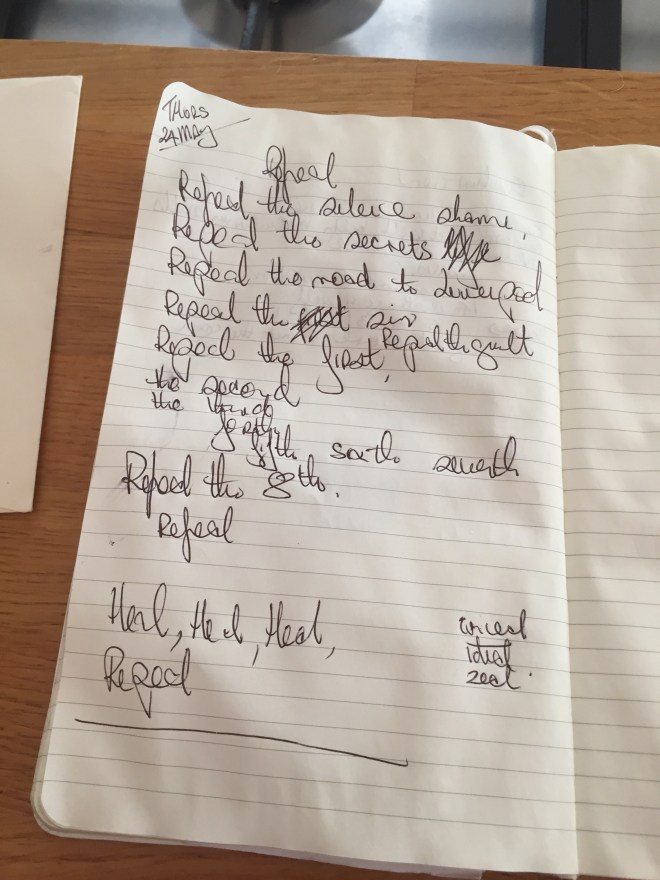 THURS
24 MAY
Repeal
Repeal the silence shame,
Repeal the secrets
Repeal the road to Liverpool
Repeal the sin
Repeal the guilt
Repeal the first,
the second
the third
forth
fifth sixth seventh
Repeal the 8th.
Repeal
Heal, Heal, Heal,
Repeal
unreal
ideal
zeal.